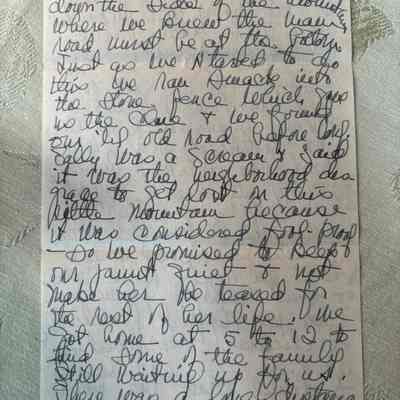 down the sides of the mountain
where we knew the main
road must be at the bottom.
Just as we started to do
this we ran smack into
the stone fence which gave
us the clue & we found
our lil old road before long.
Sally was a scream & said
it was the neighborhood dis
grace to get lost on this
little mountain because
it was considered fool-proof
– So we promised to keep
our jaunt quiet & not
make her be teased for
the rest of her life. We
got home at 5 to 12 to
find some of the family
still waiting up for us.
There was a long distance